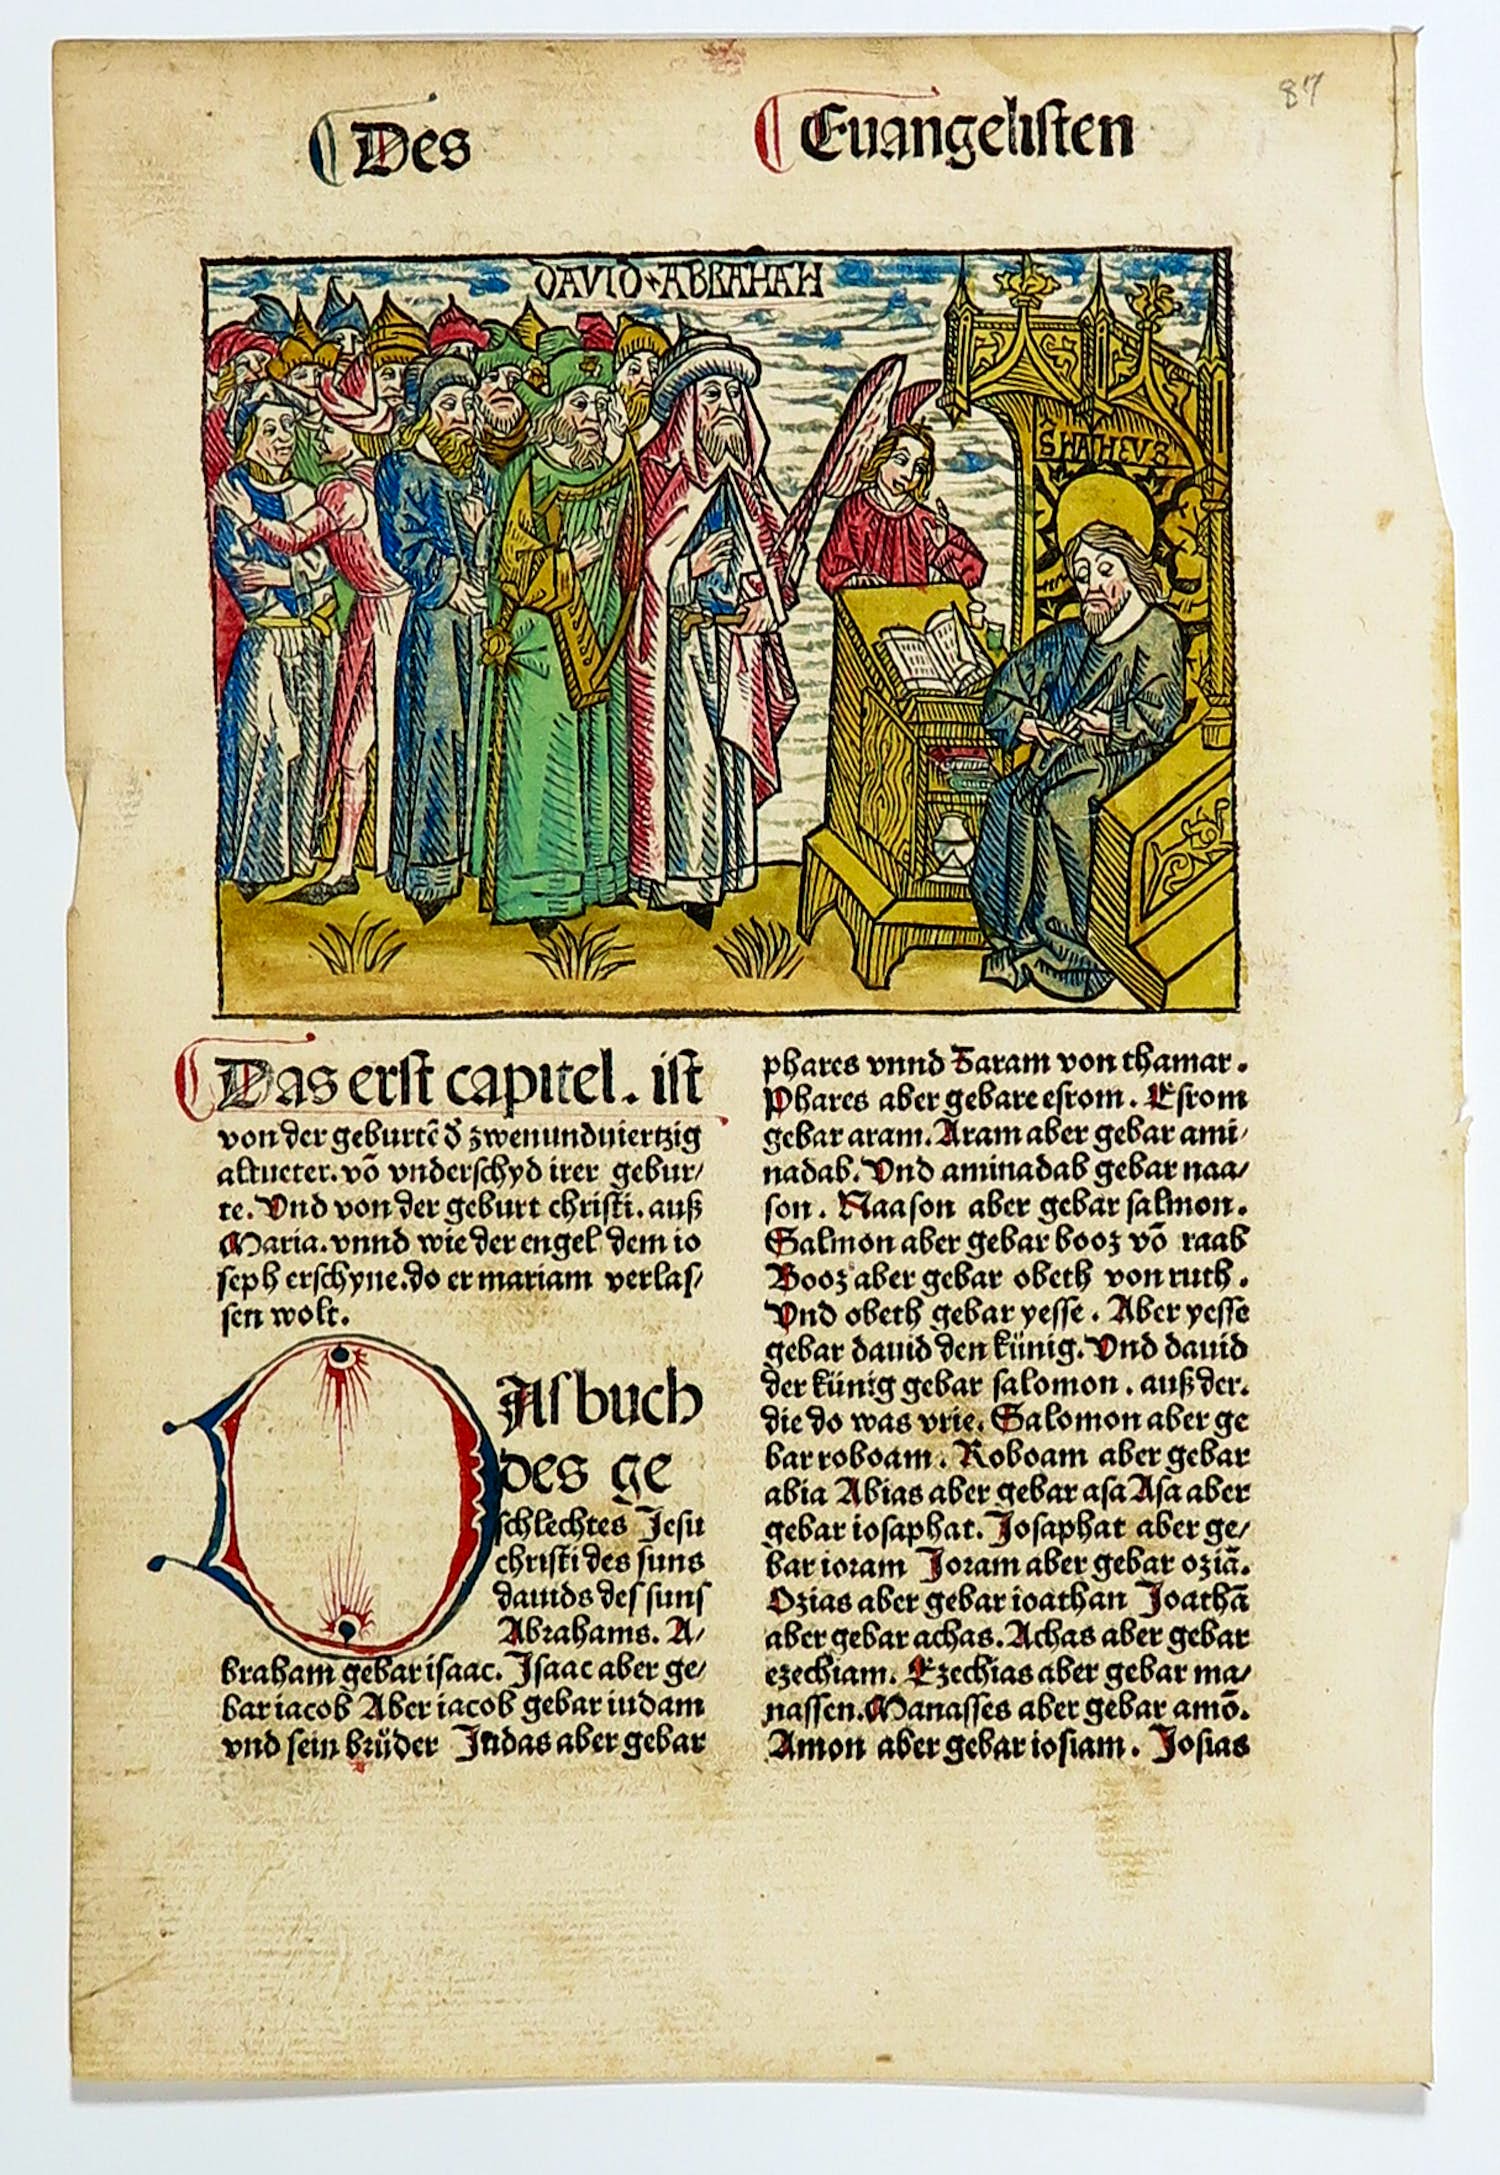 87
Des Euangelisten
DAVID ABRAHAM
S MATHEVS
Das erst capitel. ist
von der geburtē d̕ zwenundviertzig
altueter. vō vnderschyd irer gebur/
te. Vnd von der geburt christi. auß
Maria. vnnd wie der engel dem io
seph erschyne. do er mariam verlas/
sen wolt.
DAs buch
des ge
schlechtes Jesu
christi des suns
dauids des suns
Abrahams. A/
braham gebar isaac. Isaac aber ge/
bar iacob Aber iacob gebar iudam
vnd sein brüder Judas aber gebar
phares vnnd zaram von thamar.
Phares aber gebare esrom. Esrom
gebar aram. Aram aber gebar ami/
nadab. Vnd aminadab gebar naa/
son. Naason aber gebar salmon.
Salmon aber gebar booz vō raab
Booz aber gebar obeth von ruth.
Vnd obeth gebar yesse. Aber yesse
gebar dauid den künig. Vnd dauid
der künig gebar salomon. auß der.
die do was vrie. Salomon aber ge
bar roboam. Roboam aber gebar
abia Abias aber gebar asa Asa aber
gebar iosaphat. Josaphat aber ge/
bar ioram Joram aber gebar oziā.
Ozias aber gebar ioathan Joathā
aber gebar achas. Achas aber gebar
ezechiam. Ezechias aber gebar ma/
nassen. Manasses aber gebar amō.
Amon aber gebar iosiam. Josias